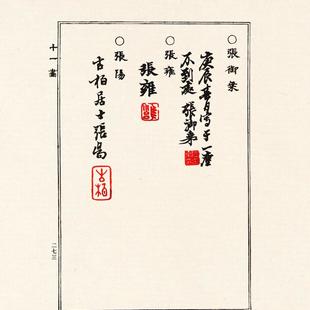 ○張御乘
庚辰春月寫于一塵
不到處 張御乘
○張雍
張雍
○張陽
古柏居士張陽
古柏
十一畫
二七三